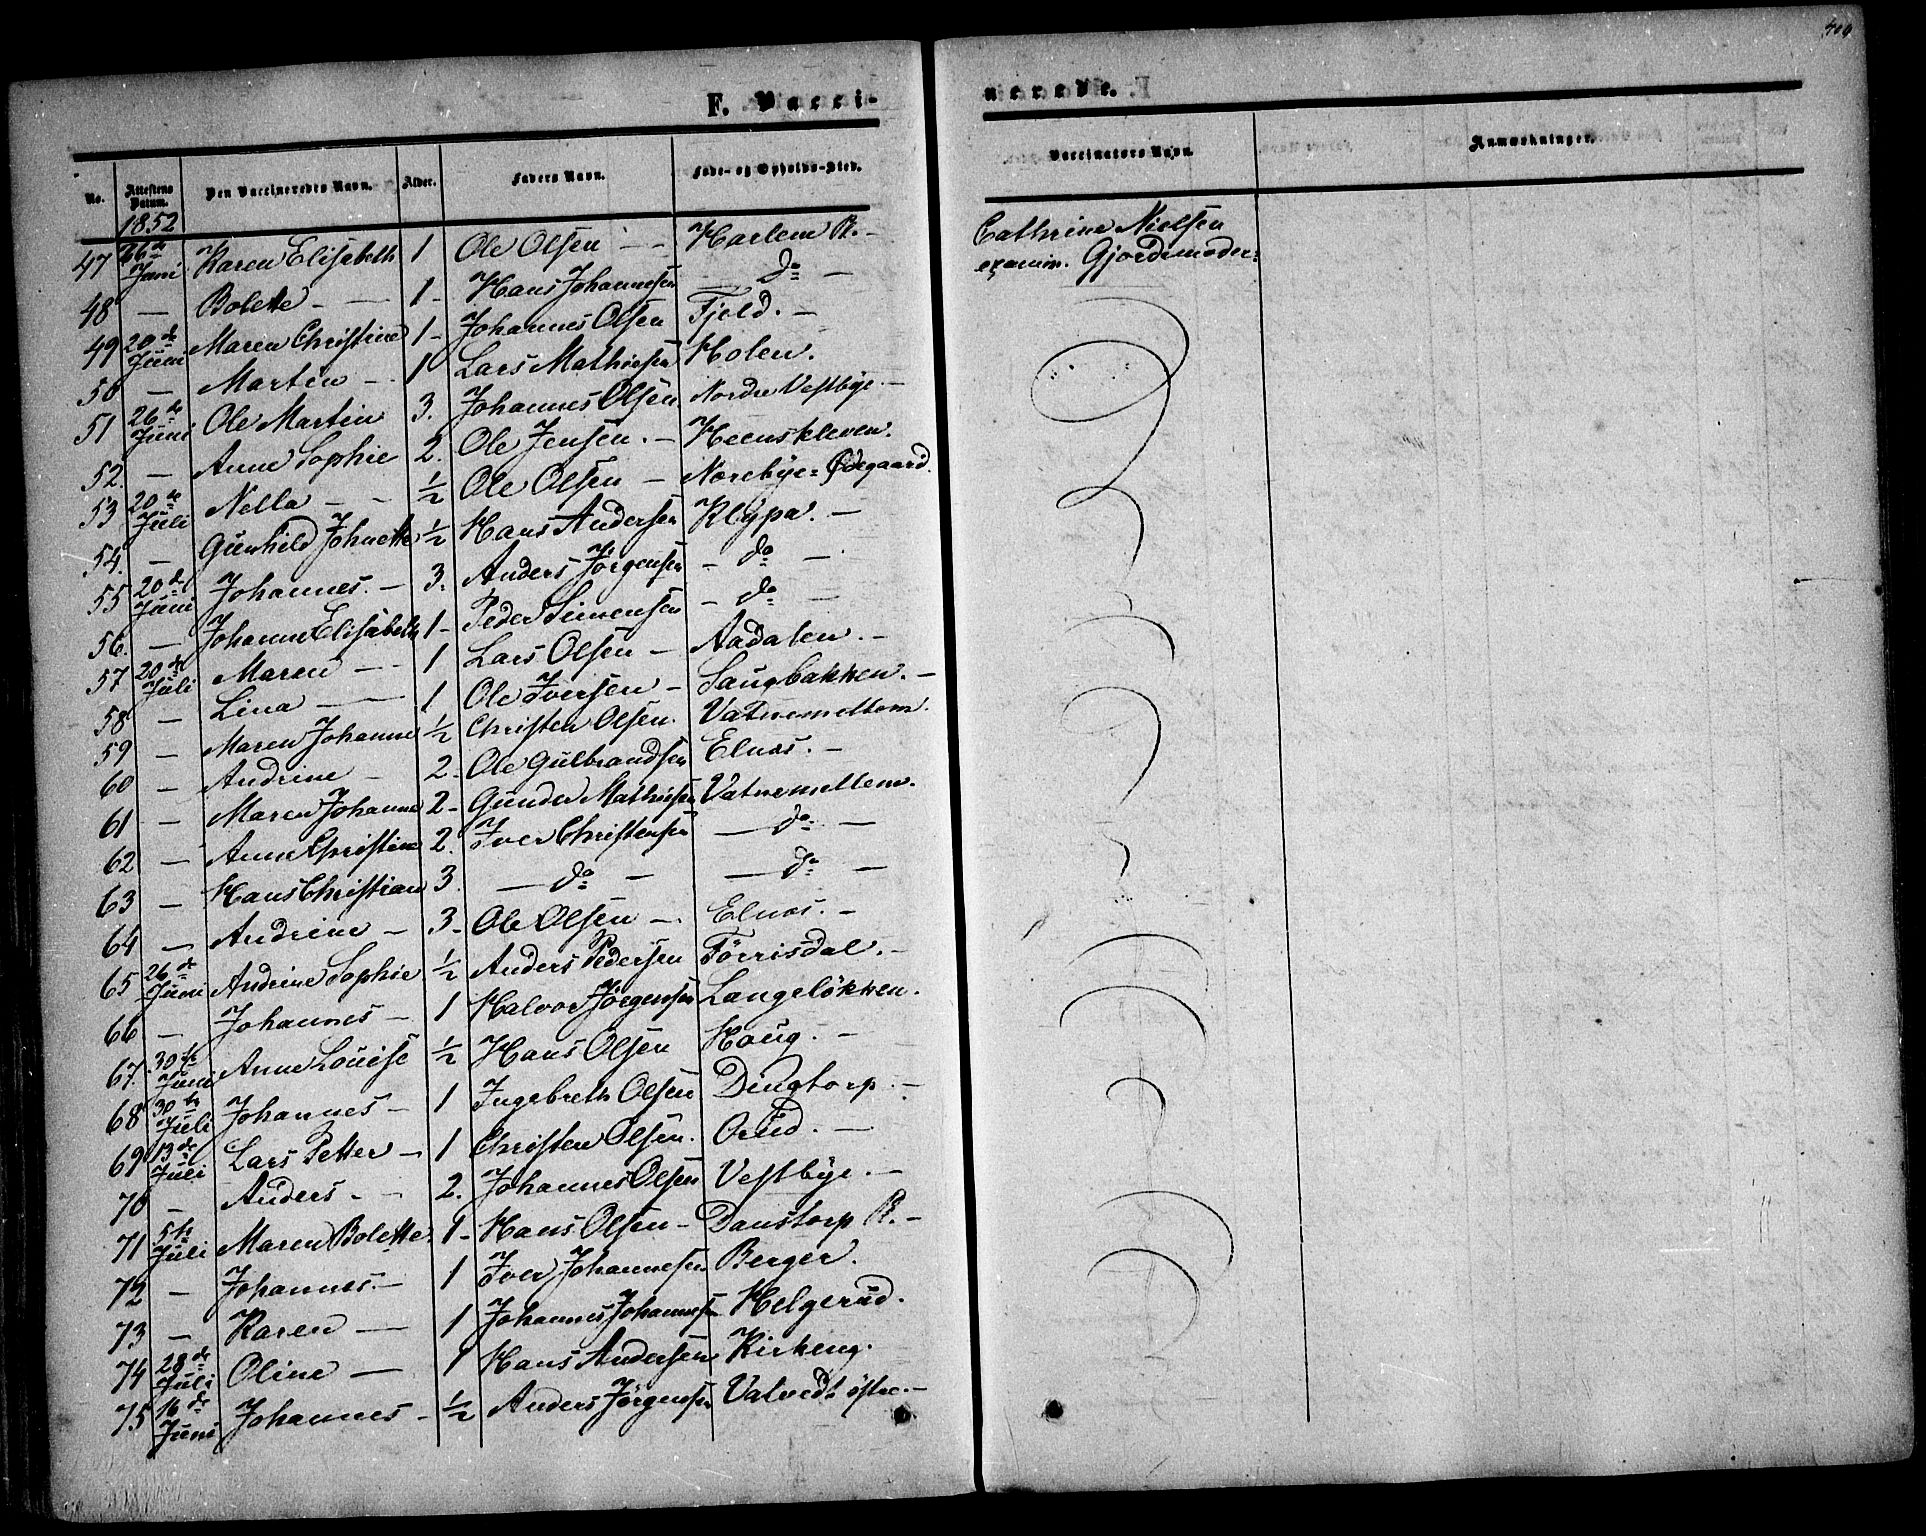 F. Vacci-
nerede.
No. Attestens Datum. Den Vaccineredes Navn. Alder. Faders Navn. Føde- og Opholds-Sted.
Vaccinators Navn. Anmærkninger.
1852
47 16de Juni Karen Elisabeth 1 Ole Olsen - Harlem P. - Cathrine Nielsen
examin. Gjordemoder:
48 — Bolette - 1 - Hans Johannesen - do -
49 20de Juni Maren Christine 1 - Johannes Olsen Fjeld. -
50 — Martin - 1 Lars Mathisen Holen.
51 26de Juni Ole Martin 3. Johannes Olsen Nordre Vestbye. -
52. — Anne Sophie 2. Ole Jensen. - Heenskleven.
53 20de Juli Nella - - ½ Ole Olsen - Norebye= Ødegaard.
54. — Gunhild Johnette ½ Hans Andersen Klypa. -
55 20de Juni Johannes. - 3. Anders Jörgensen - do -
56. — Johanne Elisabeth 1 - Peder Simensen - do -
57 20de Juli Maren - - 1 Lars Olsen - Aadalen. -
58 — Lina - 1 Ole Iversen - Saugbakken. -
59 — Maren Johanne ½ Christen Olsen. Vatnemellem.
60 — Andrine - 2 - Ole Gulbrandsen Elnæs. -
61 — Maren Johanne 2 - Gunder Mathisen Vatnemellem.
62 — Anne Christine 2. Iver Christensen - do -
63 — Hans Christian 3. - do - - do -
64 — Andrine - 3 - Ole Olsen - Elnæs. -
65 26de Juni Andrine Sophie ½ Anders Pedersen Törrisdal. -
66 — Johannes - 1 Halvor Jörgensen Langelökken.
67. 30te Juni Anne Louise ½ Hans Olsen Houg. -
68 30te Juli Johannes - 1 Ingebreth Olsen Dingtorp. -
69 13de Juli Lars Petter - 1 Christen Olsen. Orud. -
70 — Anders - - 2. Johannes Olsen Vestbye. -
71 5te Juli Maren Bolette. 1 - Hans Olsen - Danstorp P. -
72 — Johannes. - 1 Iver Johannesen Berger.
73 — Karen - 1 Johannes Johannesen Helgerud.
74 28de Juli Oline - 1 Hans Andersen Kirkeng.
75 16de Juni Johannes - ½ Anders Jörgensen Vatvedt östre. -